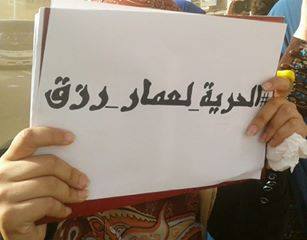 #الحرية_لعمار_رزق